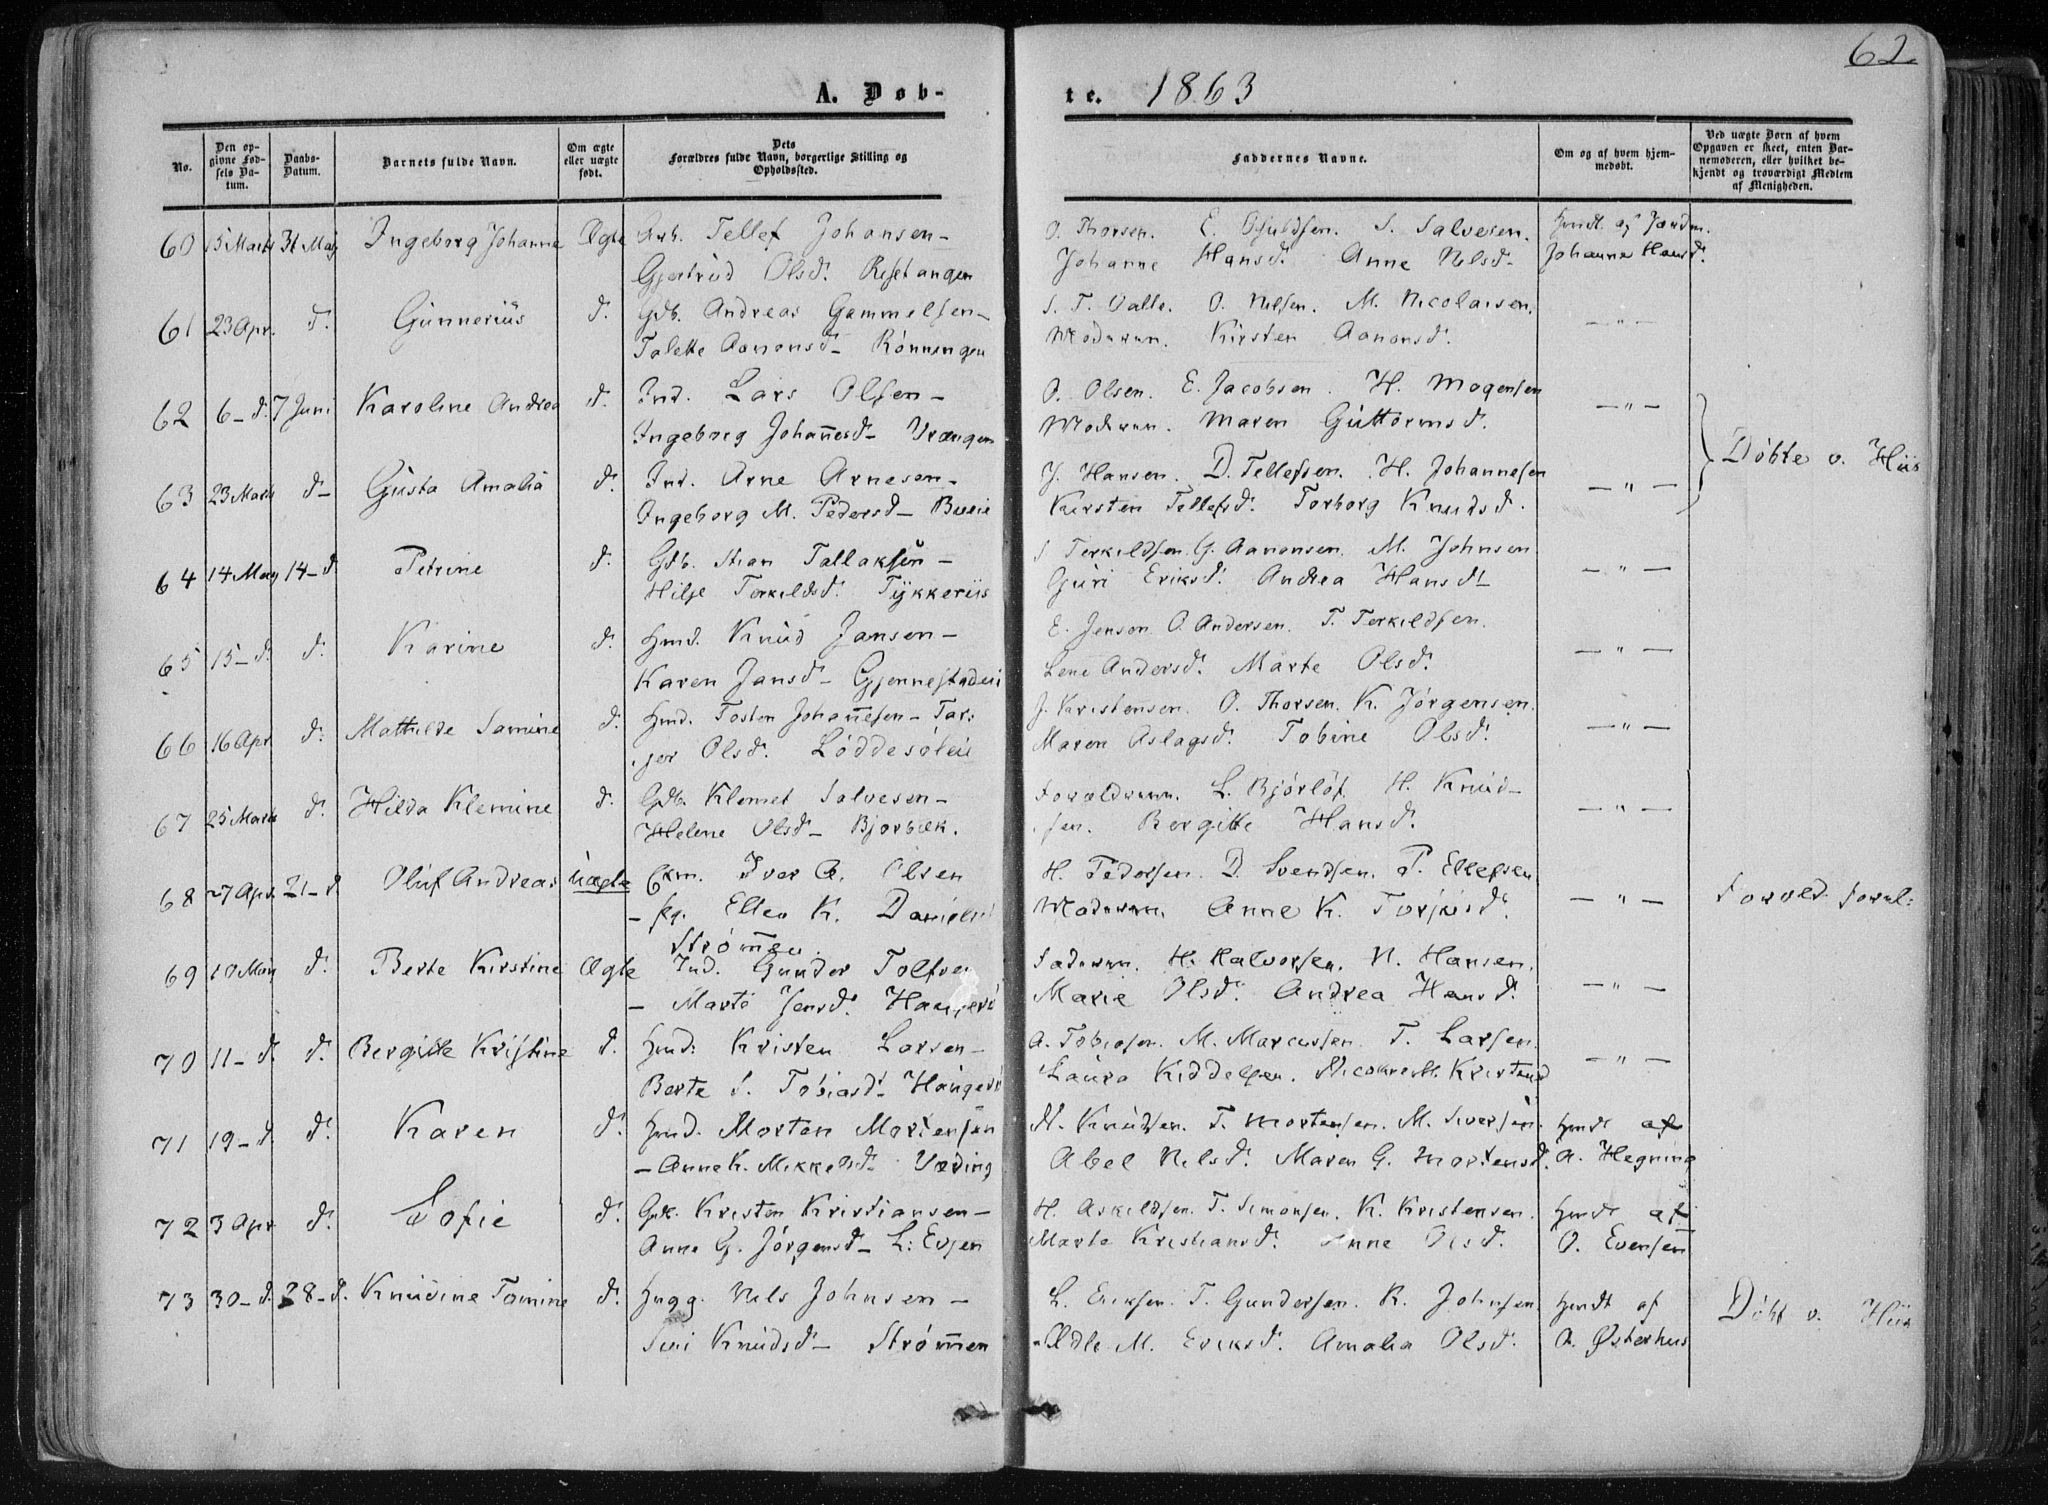 62.
A. Døb-
te. 1863
No.
Den op-
givne Fød-
sels Da-
tum.
Daabs-
Datum.
Barnets fulde Navn.
Om ægte
eller uægte
født.
Dets
Forældres fulde Navn, borgerlige Stilling og
Opholdssted.
Faddernes Navne.
Om og af hvem hjem-
medøbt.
Ved uægte Børn af hvem
Opgaven er skeet, enten Bar-
nemoderen, eller hvilket be-
kjendt og troværdigt Medlem
af Menigheden.
60 15 Marts 31 Maj Ingeborg Johanne Ægte Arb. Tellef Johansen –
Gjertrud Olsd. Restangen
O. Thorsen. E. S. Salvesen.
Johanne Hansd. Anne Nilsd.
Hmdt. af Jordm.
Johanne Hansd.
61 23 Apr. d. Gunnerius d. Gdb. Andreas Gammelsen –
Talette Aanonsd – Rønningen
S. T. Valle. O. Nilsen. M. Nicolaisen.
Moderen. Kirsten Aanonsd.
– " –
62 6 – d. 7 Juni Karoline Andrea d. Ind. Lars Olsen –
Ingeborg Johannesd – Vrængen
O. Olsen. E. Jacobsen. H. Mogensen
Moderen. Maren Guttormsd.
– " –
63 23 Marts d – Gusta Amalia d. Ind. Arne Arnesen –
Ingeborg M. Pedersd – Bueie
J. Hansen. D. Tellefsen. H. Johannesen
Kirsten Tellefsd. Torborg Knudsd.
– " –
Døbte v. Hiis
64 14 May 14 – d Petrine d. Gdb. Stian Tallaksen –
Hilje Terkildsd. Tykkeriis
S Terkildsen. G. Aanonsen. M. Johnsen
Guri Eriksd. Andrea Hansd
– " –
65 15 – d. d. Karine d. Hmd. Knud Jansen –
Karen Jansd – Gjennestadeie
E. Jensen O. Andersen. T. Terkildsen.
Lene Andersd. Marte Olsd.
– " –
66 16 Apr d. Mathilde Samine d. Hmd. Tosten Johannesen – Tar:
jer Olsd. Løddesøleie
J. Kristensen. O. Thorsen. K. Jørgensen.
Maren Aslagsd. Tobine Olsd.
– " –
67 25 Marts d. Hilda Klemine d. Gdb. Klemet Salvesen –
Helene Olsd – Bjorbæk.
Forældrene. L. Bjørløf. H. Knud-
sen. Bergitte Hansd.
– " –
68 27 Apr. 21 – d Oluf Andreas Uægte Ekm. Iver A. Olsen
– fg. Ellen K. Danielsd
Strømmen.
H. Pedersen. D. Svendsen. P. Ellefsen
Moderen. Anne K. Torjusd.
– " –
69 10 May d. Berte Kirstine Ægte Ind. Gunder Tolfsen
– Marte Jensd.
Faderen. H. Halvorsen. N. Hansen.
Marie Olsd. Andrea Hansd.
– " –
70 11 – d. d. Bergitte Kristine d. Hmd: Kristen Larsen –
Berte S. Tobiasd.
A. Tobiasen. M. Marcussen. T. Larsen.
Laura Kiddelsen.
– " –
71 19 – d. d. Karen d. Hmd. Morten Mortensen
– Anne K. Mikkelsd – Væding
N. Knudsen. T. Mortensen. M. Siversen.
Abel Nilsd. Maren G. Mortensd.
Hmdt af
A. Hegning
72 3 Apr d. Sofie d. Gdk. Kristen Kristiansen –
Anne G. Jørgensd – L: Evjen
H. Askildsen. T. Simonsen. K. Kristensen.
Marte Kristiansd. Anne Olsd.
Hmdt af
O. Evensen
73 30 – d. 28 – d. Knudine Tomine d. Hugg. Nils Johnsen –
Siri Knudsd – Strømmen
L. Eriksen. T. Gundersen. R. Johnsen.
Ædle M. Eriksd. Amalia Olsd.
Hmdt af
A. Østerhus
Døbt v. Hiis